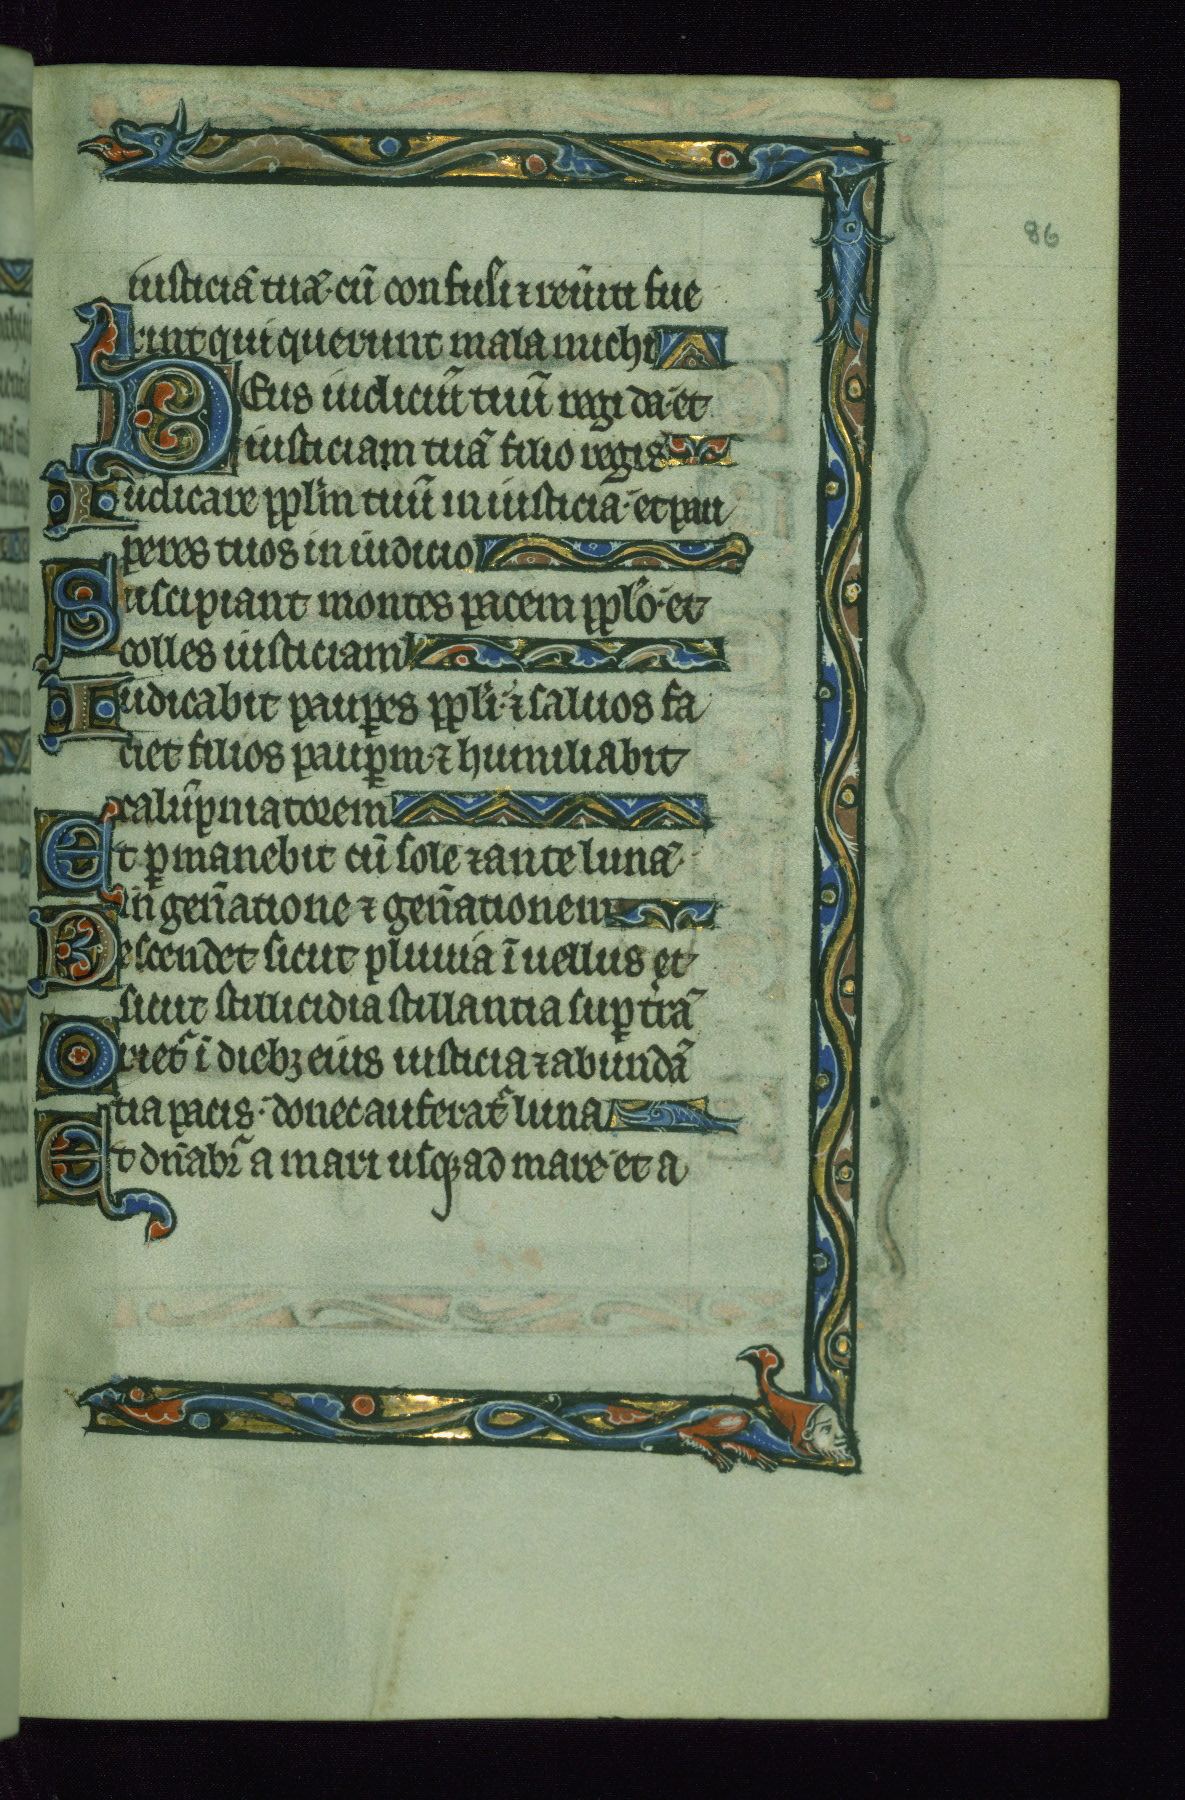 86
iusticiā tuā· cū confusi ⁊ reūiti fue
rint qui querunt mala michi
Deus iudiciū tuū regi da· et
iusticiam tuā filio regis
Iudicare pplm̄ tuū in iusticia· et pau
peres tuos in iudicio
Suscipiant montes pacem pplō· et
colles iusticiam
Iudicabit paup̱es ppli· ⁊ saluos fa
ciet filios paup̱m· ⁊ humiliabit
calūpniatorem
Et p̱manebit cū sole ⁊ ante lunā·
in gen̄atione ⁊ gen̄ationem
Descendet sicut pluuia ī uellus et
sicut stillicidia stillantia sup̱ t̄rā
Oriet᷑ ī dieb; eius iusticia ⁊ abundā
tia pacis· donec auferat᷑ luna
Et dn̄abr̄ a mari usq; ad mare· et a